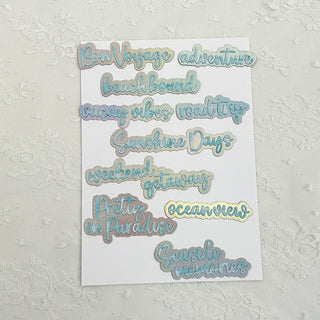 Bon Voyage
adventure
beach bound
vacay vibes
road trip
Sunshine Days
weekend
getaway
Pretty
in Paradise
ocean view
Seaside
memories